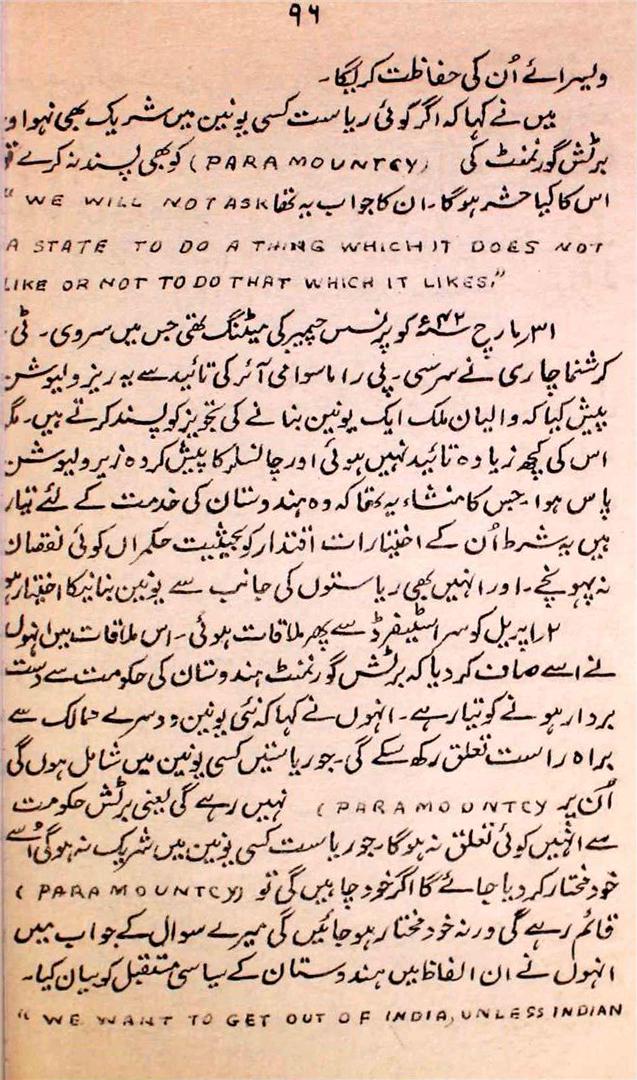 ۹۶
ویسرائے اُن کی حفاظت کریگا۔
میں نے کہا کہ اگر کوئی ریاست کسی یونین میں شریک بھی نہوا و
برٹش گورنمنٹ کی (PARAMOUNTCY) کو بھی پسند نہ کرے تو
اس کا کیا حشر ہوگا۔ ان کا جواب یہ تھا "WE WILL NOT ASK
A STATE TO DO A THING WHICH IT DOES NOT
LIKE OR NOT TO DO THAT WHICH IT LIKES."
۳۱ مارچ ۴۲ء کو پرنسس چیمبر کی میٹنگ تھی جس میں سروی۔ ٹی۔
کرشنما چاری نے سرسی۔ پی راما سوامی آئر کی تائید سے یہ ریزولیوشن
پیش کیا کہ والیان ملک ایک یونین بنانے کی تجویز کو پسند کرتے ہیں۔ مگر
اس کی کچھ زیادہ تائید نہیں ہوئی اور چانسلر کا پیش کردہ زیرولیوشن
پاس ہوا۔ جس کا منشاء یہ تھا کہ وہ ہندوستان کی خدمت کے لئے تیار
ہیں بہ شرط اُن کے اختیارات اقتدار کو بحیثیت حکمراں کوئی نقصان
نہ پہونچے۔ اور انہیں بھی ریاستوں کی جانب سے یونین بنانیکا اختیار ہو
۲ اپریل کو سر اسٹیفرڈ سے پھر ملاقات ہوئی۔ اس ملاقات میں انہوں
نے اسے صاف کردیا کہ برٹش گورنمنٹ ہندوستان کی حکومت سے دست
بردار ہونے کو تیار ہے۔ انہوں نے کہا کہ نئی یونین دوسرے ممالک سے
براہ راست تعلق رکھ سکے گی۔ جو ریاستیں کسی یونین میں شامل ہوں گی
اُن پر PARAMOUNTCY) نہیں رہے گی یعنی برٹش حکومت
سے انہیں کوئی تعلق نہ ہوگا۔ جو ریاست کسی یونین میں شریک نہ ہوگی اُسے
خود مختار کردیا جائے گا اگر خود چاہیں گی تو (PARAMOUNTCY)
قائم رہے گی ورنہ خود مختار ہوجائیں گی میرے سوال کے جواب میں
انہوں نے ان الفاظ میں ہندوستان کے سیاسی مستقبل کو بیان کیا۔
"WE WANT TO GET OUT OF INDIA, UNLESS INDIAN